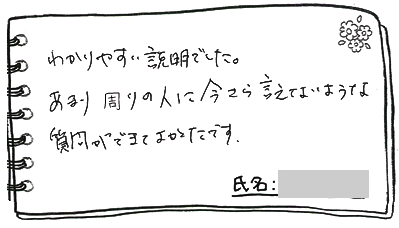 わかりやすい説明でした。
あまり周りの人に今さら言えないような
質問ができてよかたです.
氏名: